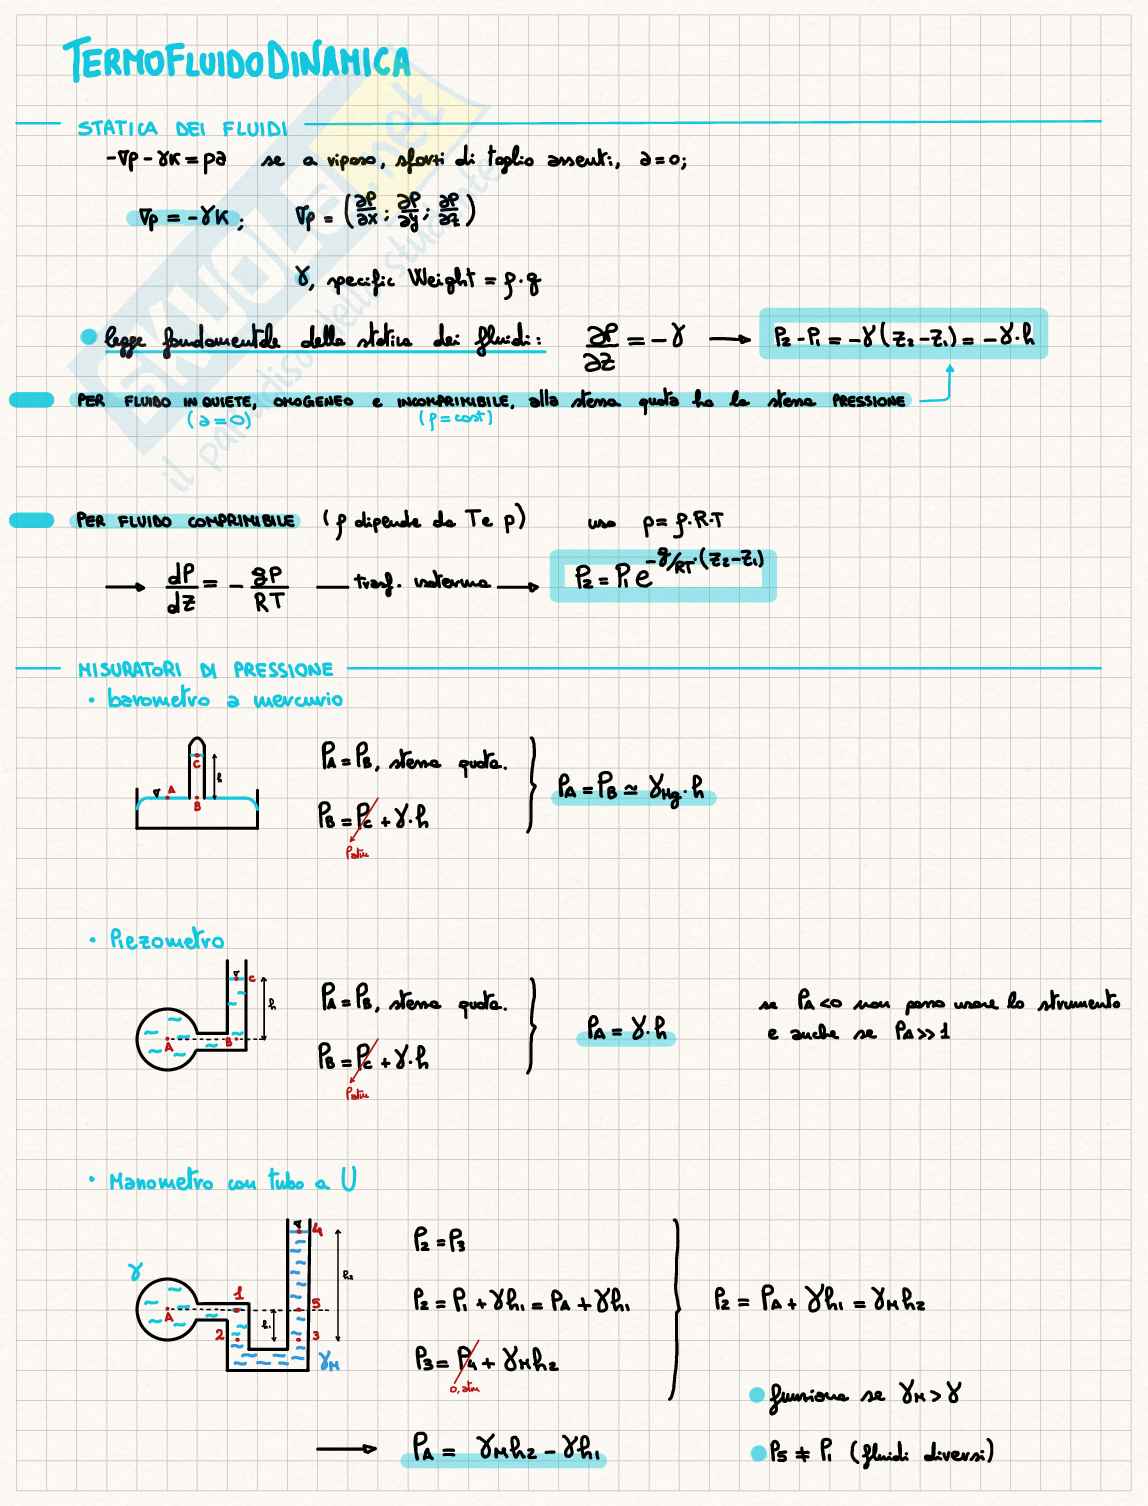 TERMOFLUIDODINAMICA
STATICA DEI FLUIDI
-∇p - γK = ρa se a riposo, sforzi di taglio assenti, a=0;
∇p = -γK; ∇p = (∂P/∂x ; ∂P/∂y ; ∂P/∂z)
γ, specific Weight = ρ·g
legge fondamentale della statica dei fluidi: ∂P/∂z = -γ → P₂-P₁ = -γ(z₂-z₁) = -γ·h
PER FLUIDO IN QUIETE, OMOGENEO e INCOMPRIMIBILE, alla stessa quota ho la stessa PRESSIONE
(a=0) (ρ=cost)
PER FLUIDO COMPRIMIBILE (ρ dipende da T e p) uso p=ρ·R·T
→ dP/dz = - gP/RT — trasf. isoterma → P₂ = P₁ e^-g/RT·(z₂-z₁)
MISURATORI DI PRESSIONE
• barometro a mercurio
C
h
A
B
PA = PB, stessa quota.
PB = Pc + γ·h
Patm
PA = PB ≃ γHg·h
• Piezometro
C
h
A
B
PA = PB, stessa quota.
PB = Pc + γ·h
Patm
PA = γ·h
se PA<0 non posso usare lo strumento
e anche se PA>>1
• Manometro con tubo a U
γ
4
h₂
1
5
A
h₁
2
3
γM
P₂ = P₃
P₂ = P₁ + γh₁ = PA + γh₁
P₃ = P₄ + γMh₂
0, atm
P₂ = PA + γh₁ = γMh₂
funziona se γM > γ
→ PA = γMh₂ - γh₁
P₅ ≠ P₁ (fluidi diversi)
SKUOLA.net
il paradiso dello studente